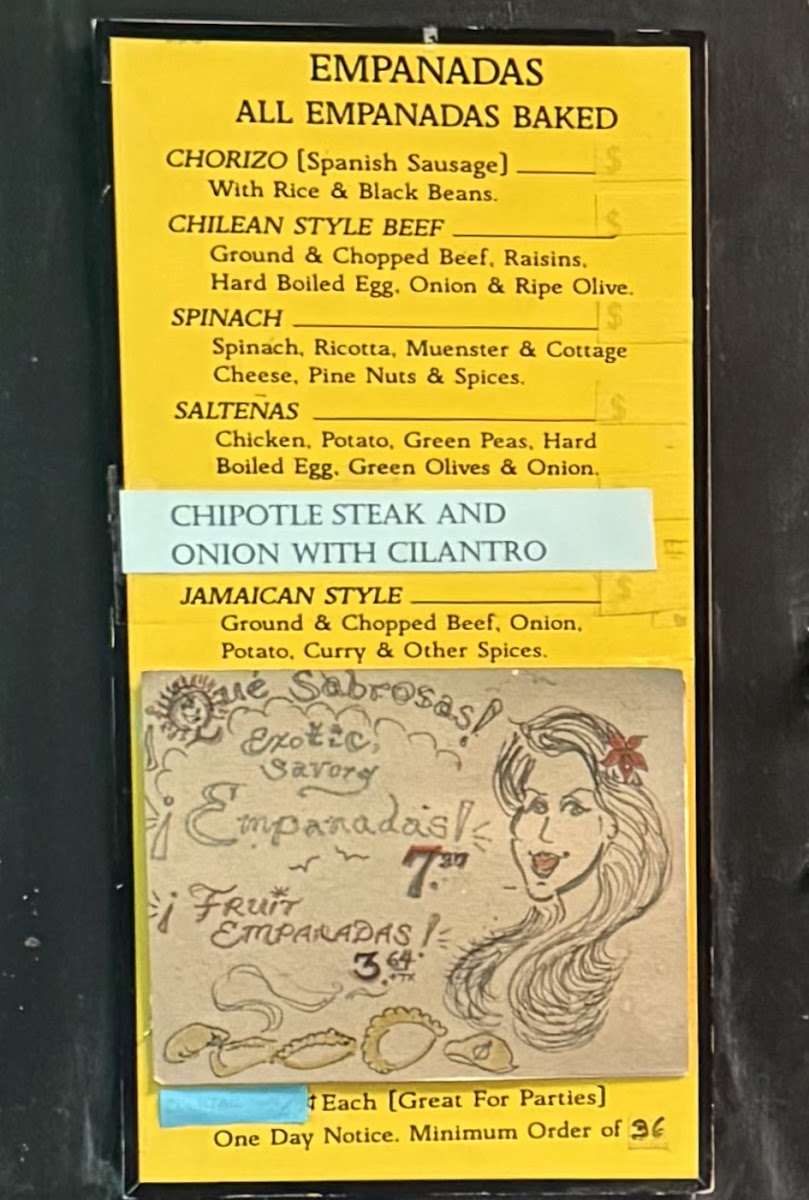 EMPANADAS
ALL EMPANADAS BAKED
CHORIZO [Spanish Sausage] $
With Rice & Black Beans.
CHILEAN STYLE BEEF $
Ground & Chopped Beef, Raisins,
Hard Boiled Egg, Onion & Ripe Olive.
SPINACH $
Spinach, Ricotta, Muenster & Cottage
Cheese, Pine Nuts & Spices.
SALTEÑAS $
Chicken, Potato, Green Peas, Hard
Boiled Egg, Green Olives & Onion.
CHIPOTLE STEAK AND
ONION WITH CILANTRO
JAMAICAN STYLE $
Ground & Chopped Beef, Onion,
Potato, Curry & Other Spices.
¡Qué Sabrosas!
Exotic,
Savory
¡Empanadas!
7.
¡FRUIT
EMPANADAS!
3.64
+TX
Each [Great For Parties]
One Day Notice. Minimum Order of 36